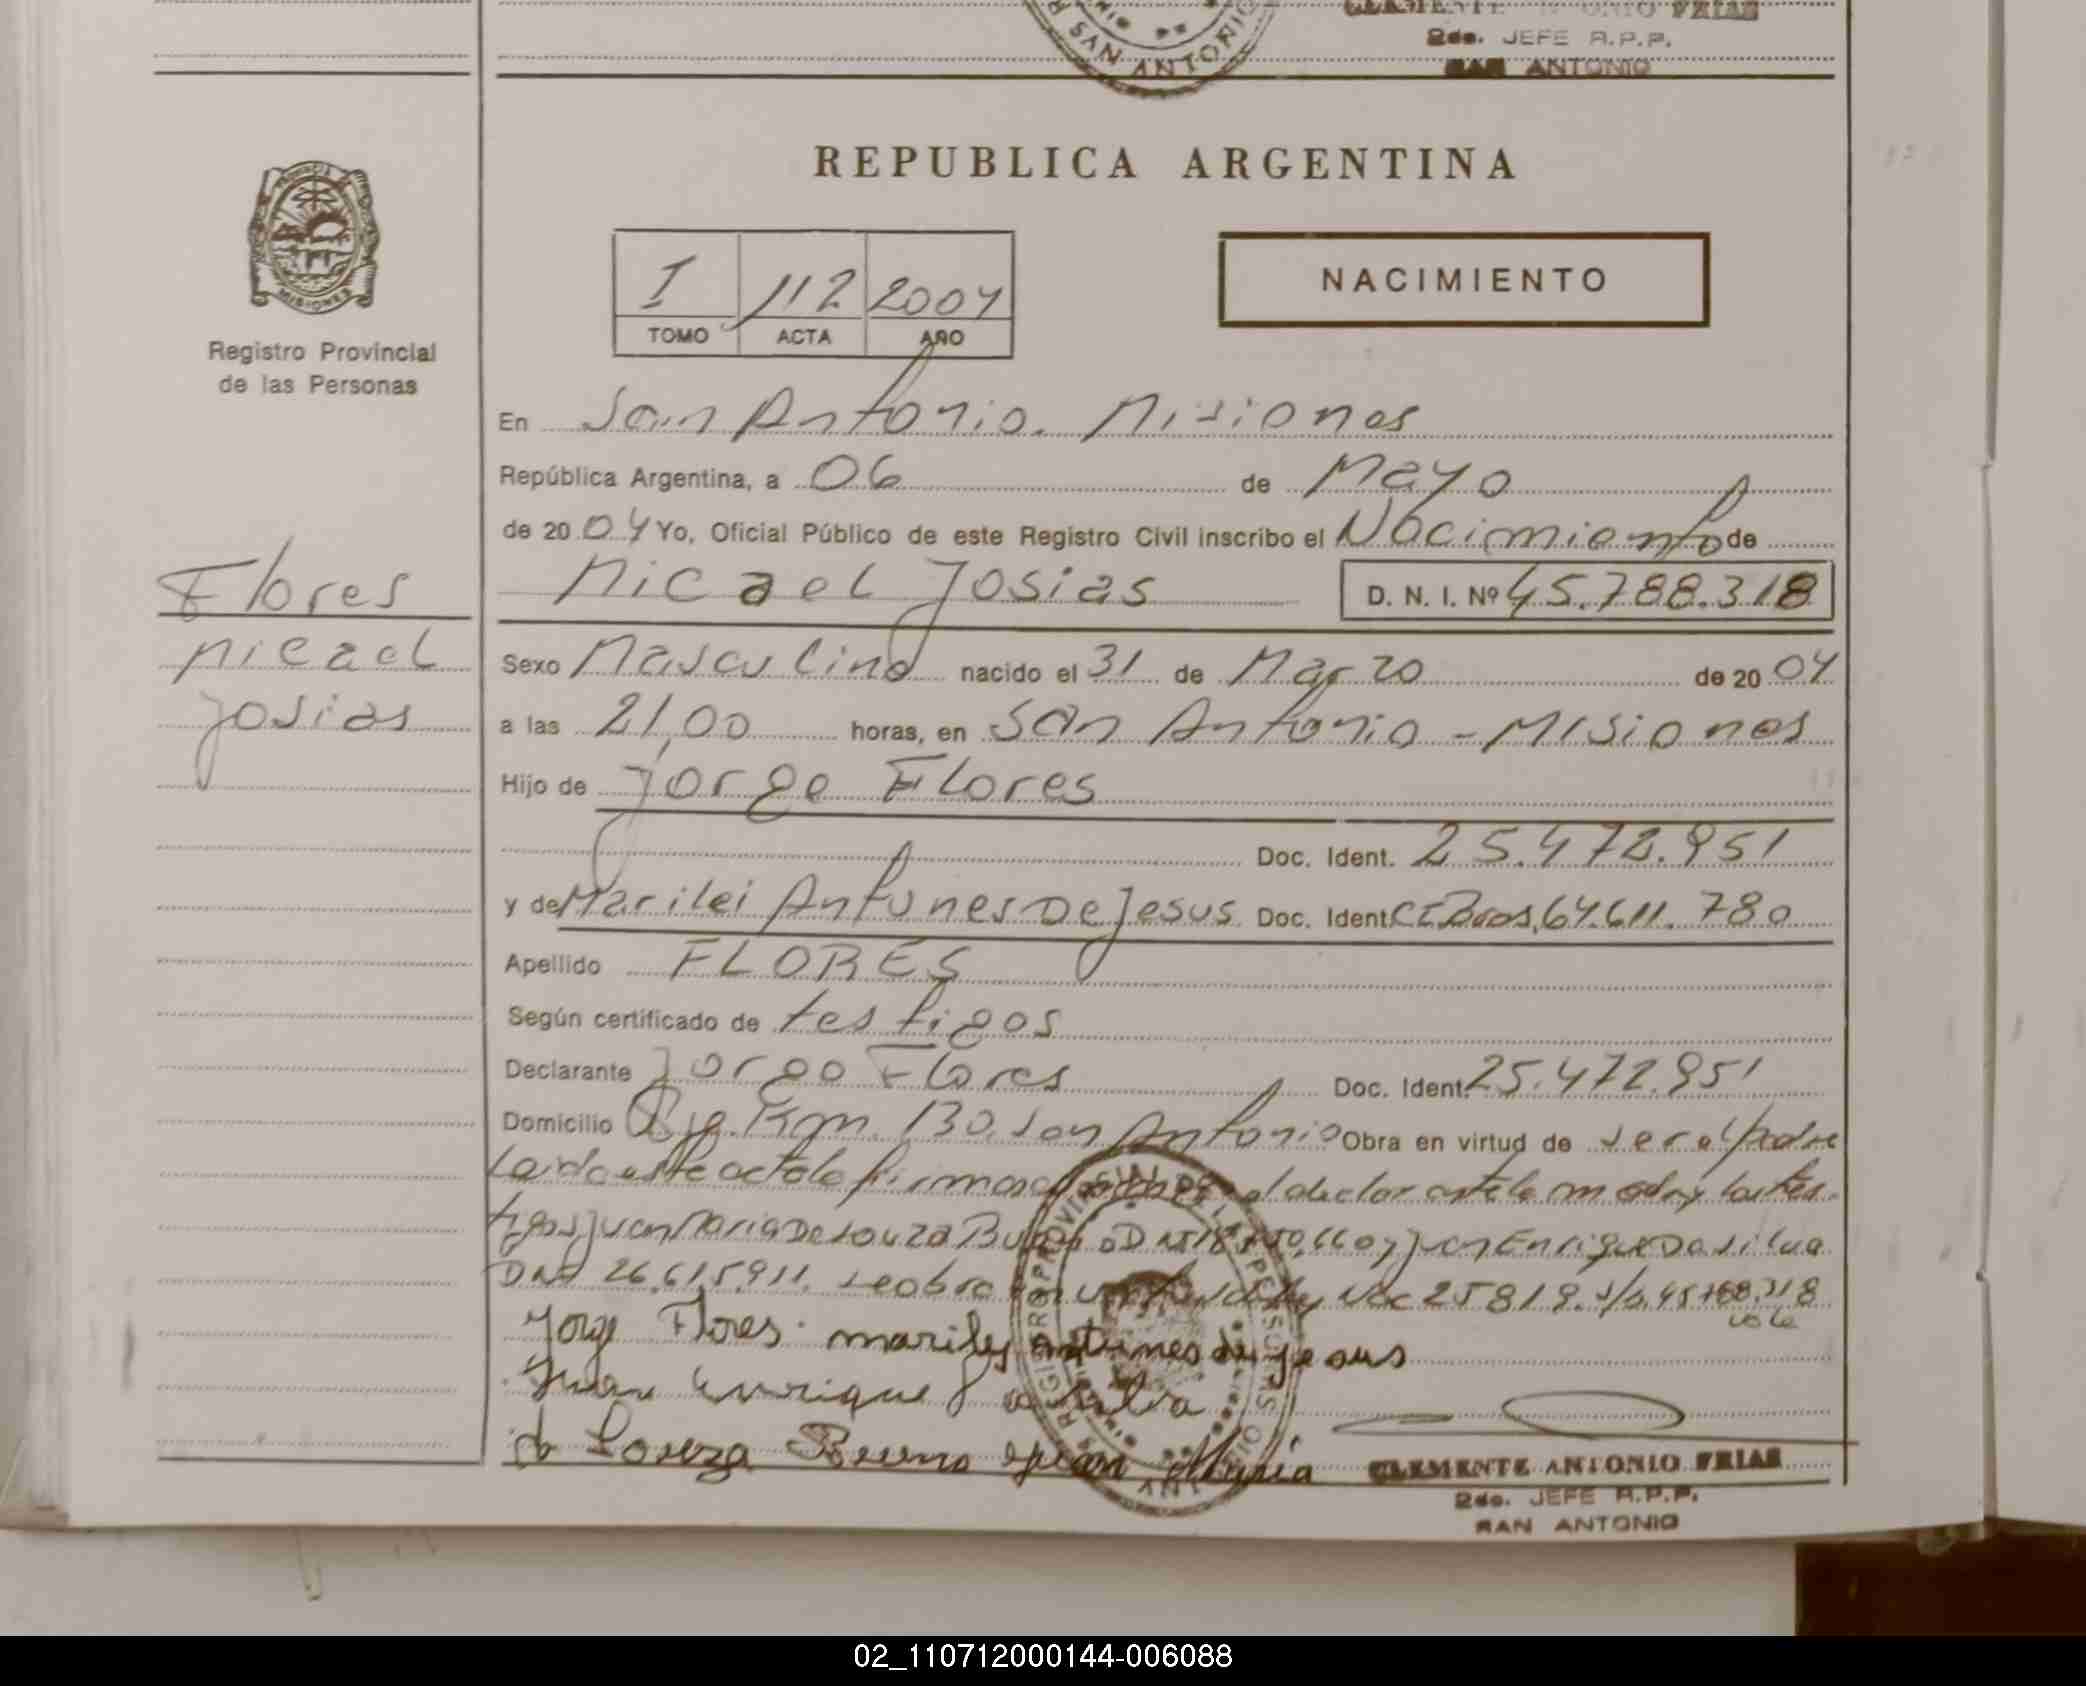 CLEMENTE ANTONIO FRIAS
2do. JEFE R.P.P.
SAN ANTONIO
SAN ANTONIO
REPUBLICA ARGENTINA
PROVINCIA DE
MISIONES
Registro Provincial
de las Personas
I 112 2004
TOMO ACTA AÑO
NACIMIENTO
En San Antonio. Misiones
República Argentina, a 06 de Mayo
de 20 04 Yo, Oficial Público de este Registro Civil inscribo el Nacimiento de
Micael Josias D. N. I. Nº 45.788.318
Flores
Micael
Josias
Sexo Masculino nacido el 31 de Marzo de 20 04
a las 21,00 horas, en San Antonio - Misiones
Hijo de Jorge Flores
Doc. Ident. 25.472.951
y de Marilei Antunes De Jesus Doc. Ident CI Bras, 64.611.780
Apellido FLORES
Según certificado de testigos
Declarante Jorge Flores Doc. Ident. 25.472.951
Domicilio Km. 130. San Antonio Obra en virtud de ser el padre
Leida este acta la firman el declarante la madre y los tes
tigos Juan Maria De Souza y Juan Enrique Da silva
DNI 26.615.911. se obra 25819. 45788.318
vale
Jorge Flores mariley antunes de jesus
Juan Enrique Da silva
de Souza Bueno Juan Maria
REGISTRO PROVINCIAL DE LAS PERSONAS
CLEMENTE ANTONIO FRIAS
2do. JEFE R.P.P.
SAN ANTONIO
02_110712000144-006088